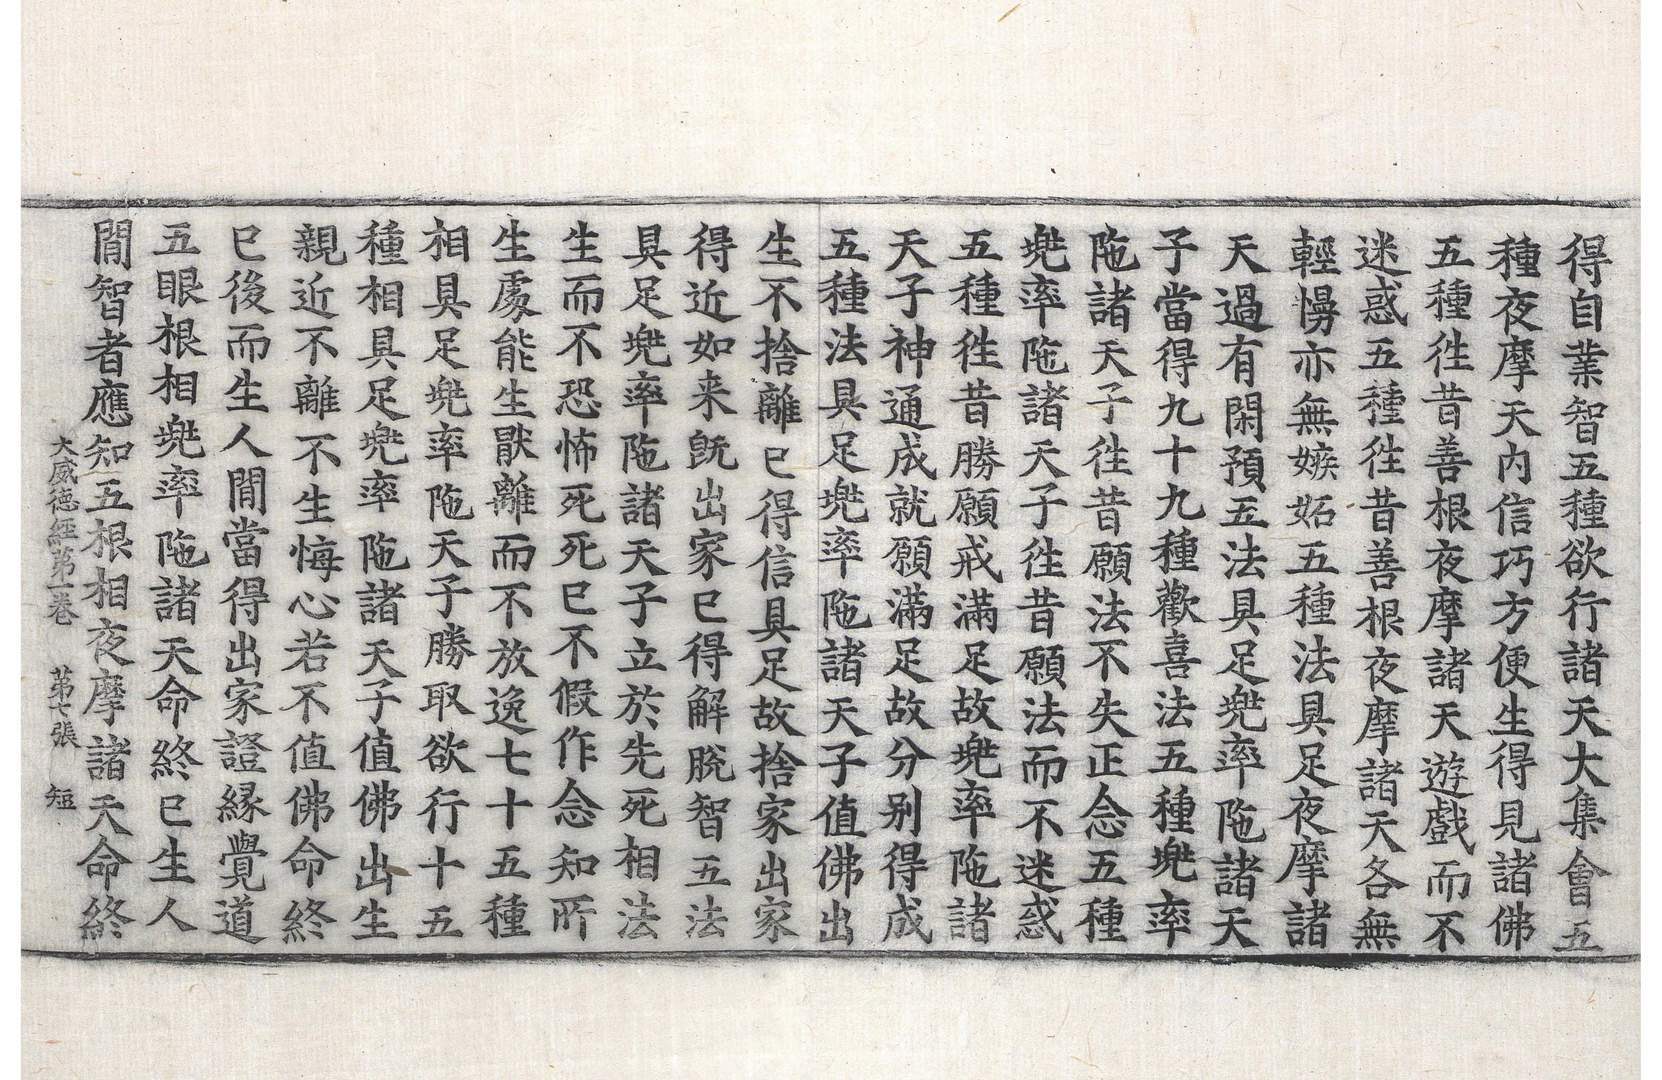 得自業智五種欲行諸天大集會五
種夜摩天内信巧方便生得見諸佛
五種徃昔善根夜摩諸天遊戲而不
迷惑五種徃昔善根夜摩諸天各無
輕慢亦無嫉妬五種法具足夜摩諸
天過有閑預五法具足兠率陁諸天
子當得九十九種歡喜法五種兠率
陁諸天子徃昔願法不失正念五種
兠率陁諸天子徃昔願法而不迷惑
五種徃昔勝願戒滿足故兠率陁諸
天子神通成就願滿足故分别得成
五種法具足兠率陁諸天子值佛出
生不捨離已得信具足故捨家出家
得近如来旣出家已得解脫智五法
具足兠率陁諸天子立於先死相法
生而不恐怖死死已不假作念知所
生處能生猒離而不放逸七十五種
相具足兠率陁天子勝取欲行十五
種相具足兠率陁諸天子值佛出生
親近不離不生悔心若不值佛命終
已後而生人間當得出家證緣覺道
五眼根相兠率陁諸天命終已生人
間智者應知五根相夜摩諸天命終
大威德經第一卷　第七張　短